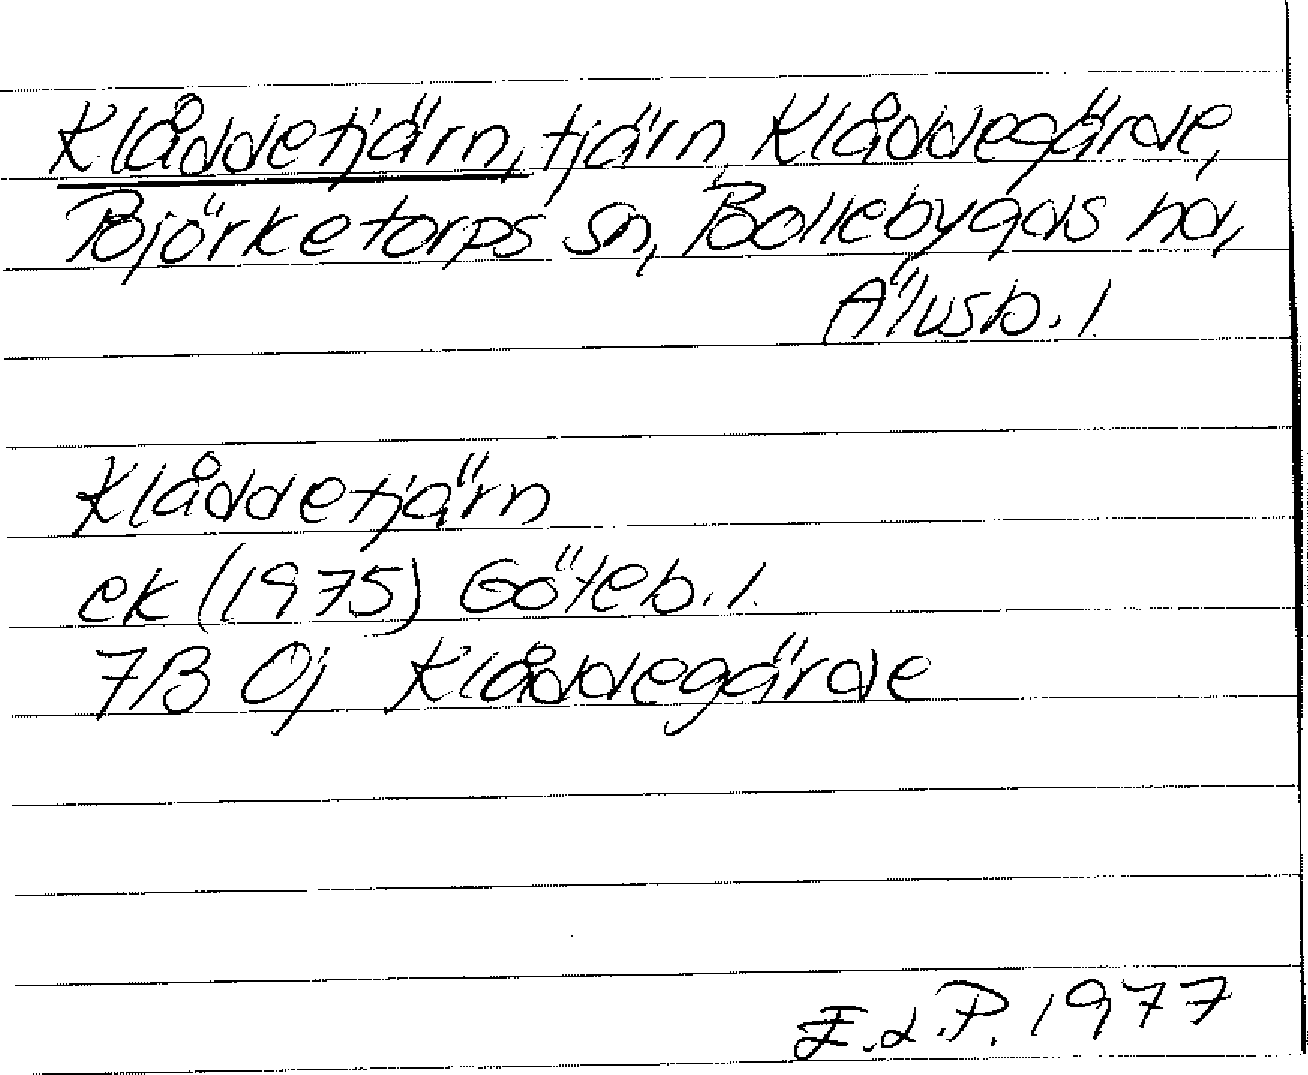 Klåddetjärn, tjärn, Klåddegärde,
Björketorps sn, Bollebygds hd,
Älvsb. l.
Klåddetjärn
ek (1975) Göteb. l.
7B 0j Klåddegärde
E.d.P. 1977